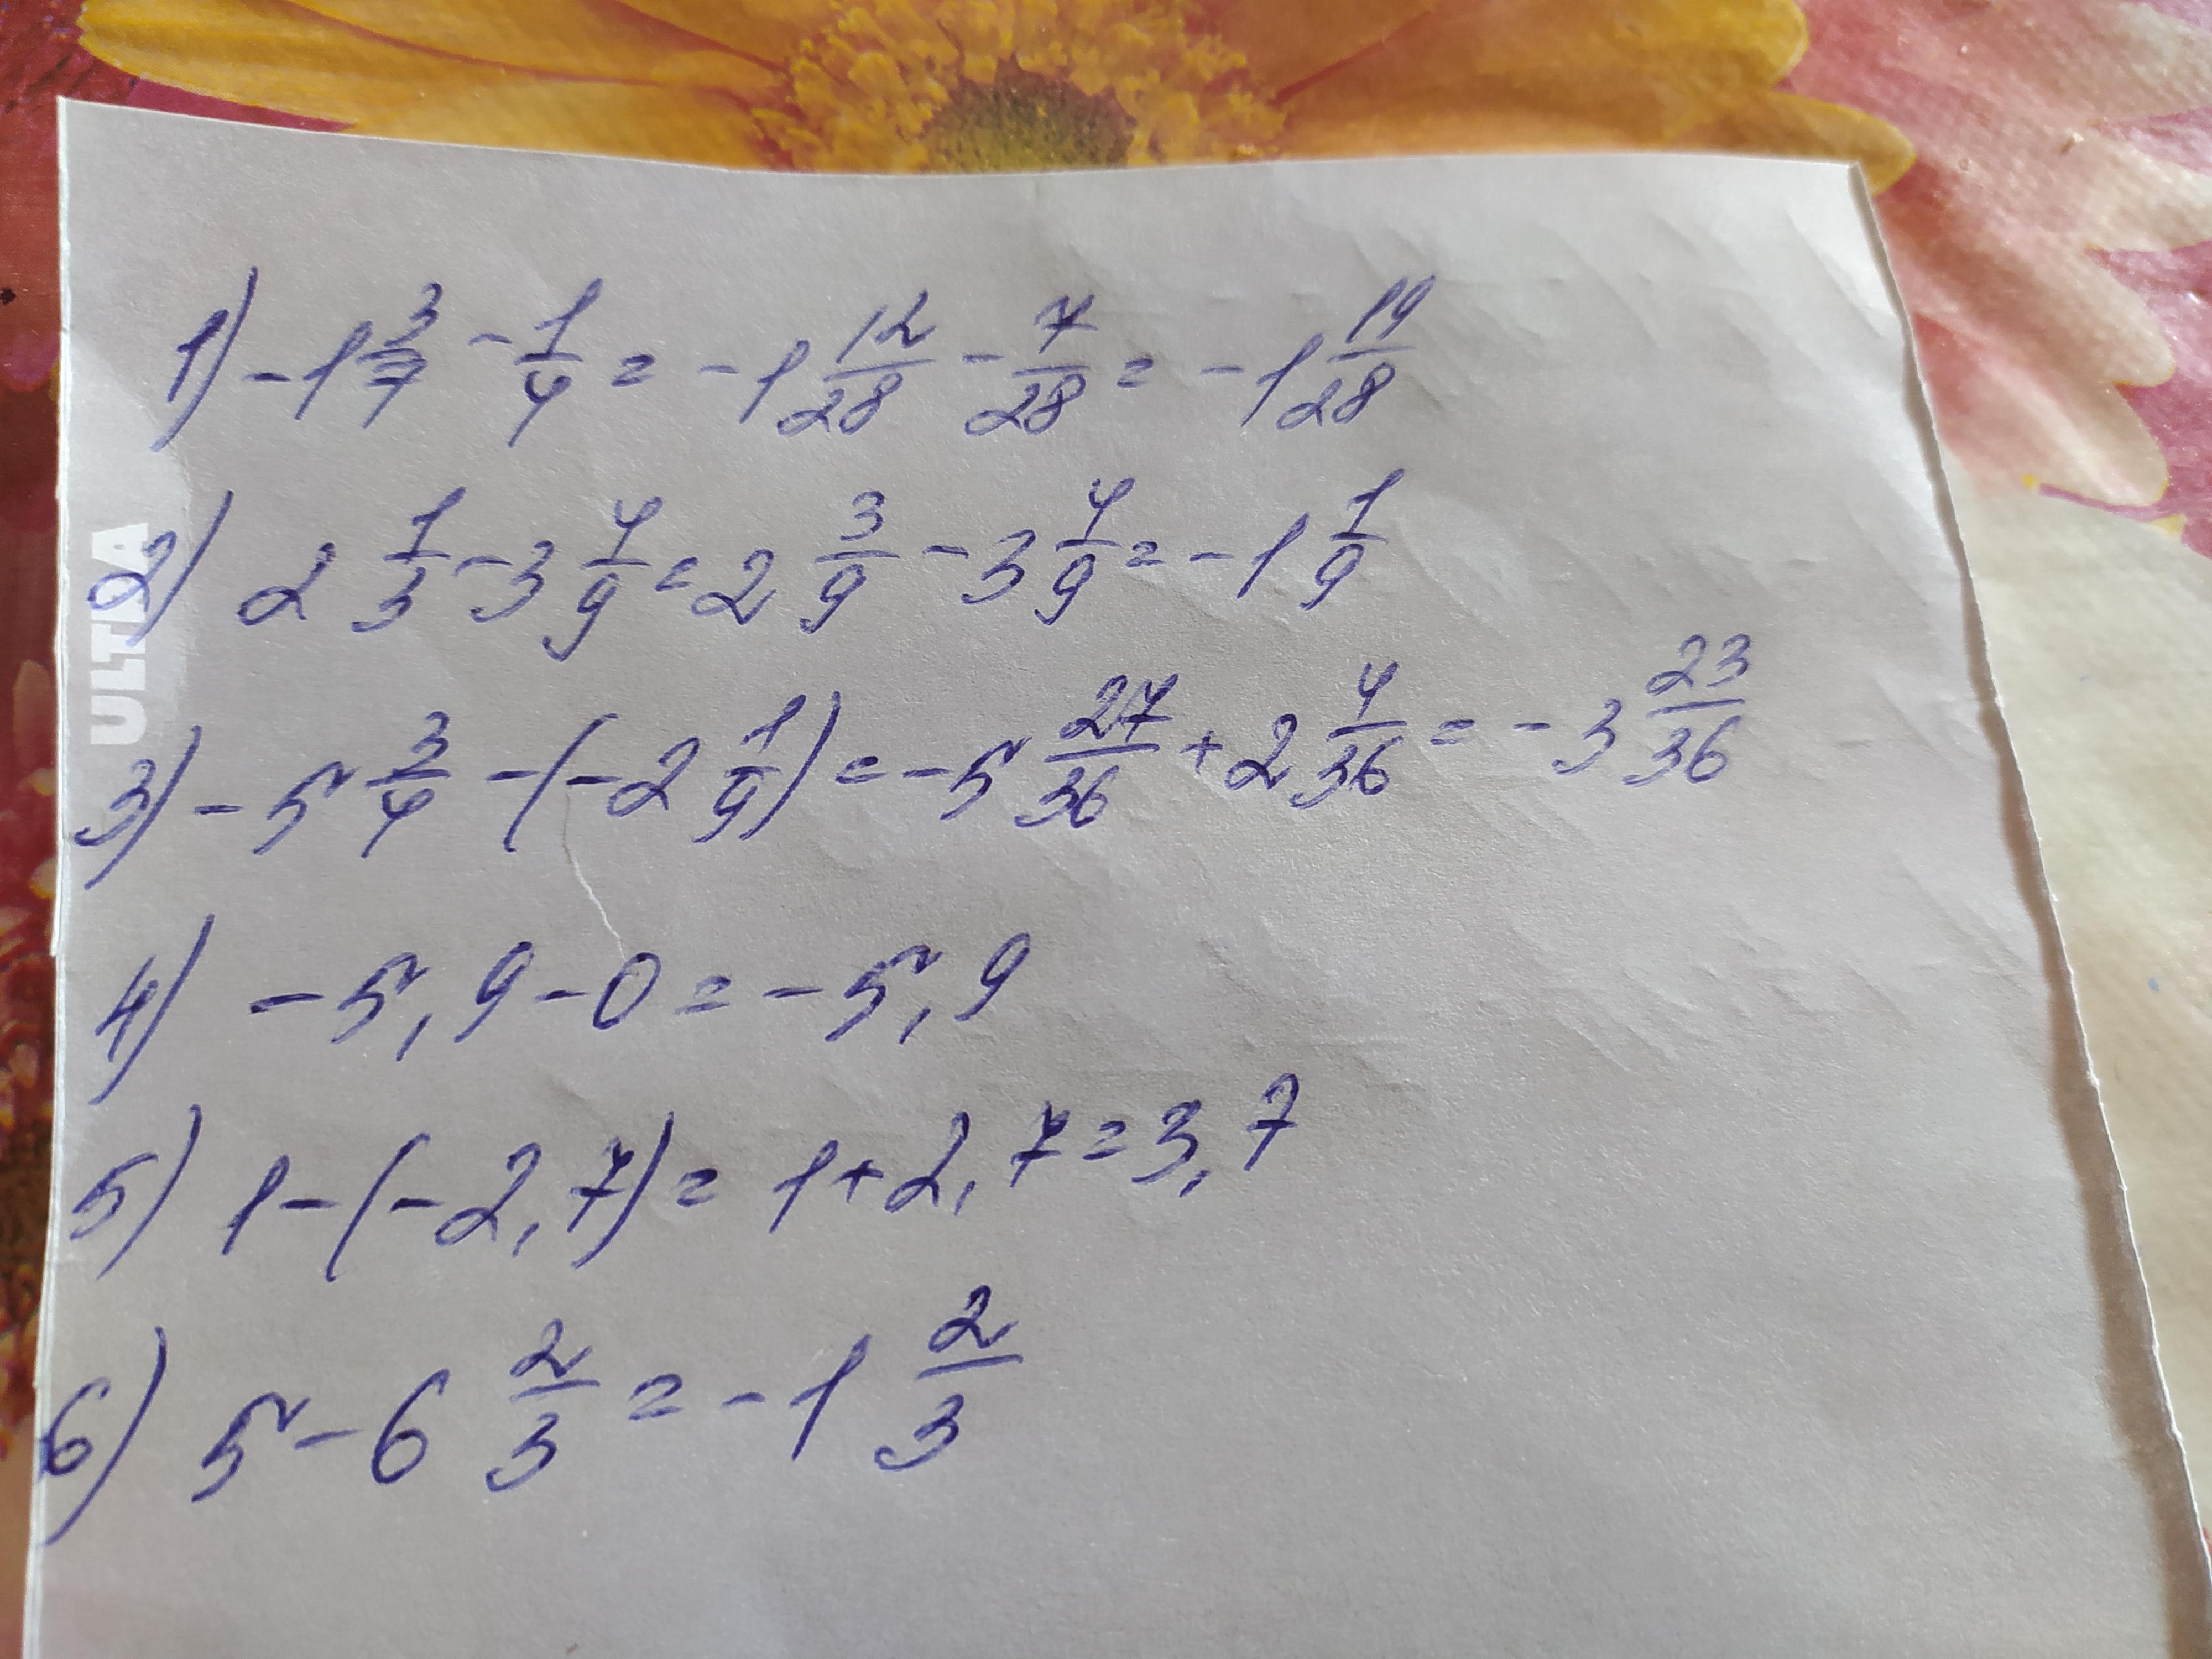 1) -1 3/7 - 1/4 = -1 12/28 - 7/28 = -1 19/28
2) 2 1/3 - 3 4/9 = 2 3/9 - 3 4/9 = -1 1/9
3) -5 3/4 - (-2 1/9) = -5 27/36 + 2 4/36 = -3 23/36
4) -5,9 - 0 = -5,9
5) 1 - (-2,7) = 1 + 2,7 = 3,7
6) 5 - 6 2/3 = -1 2/3
ULTRA